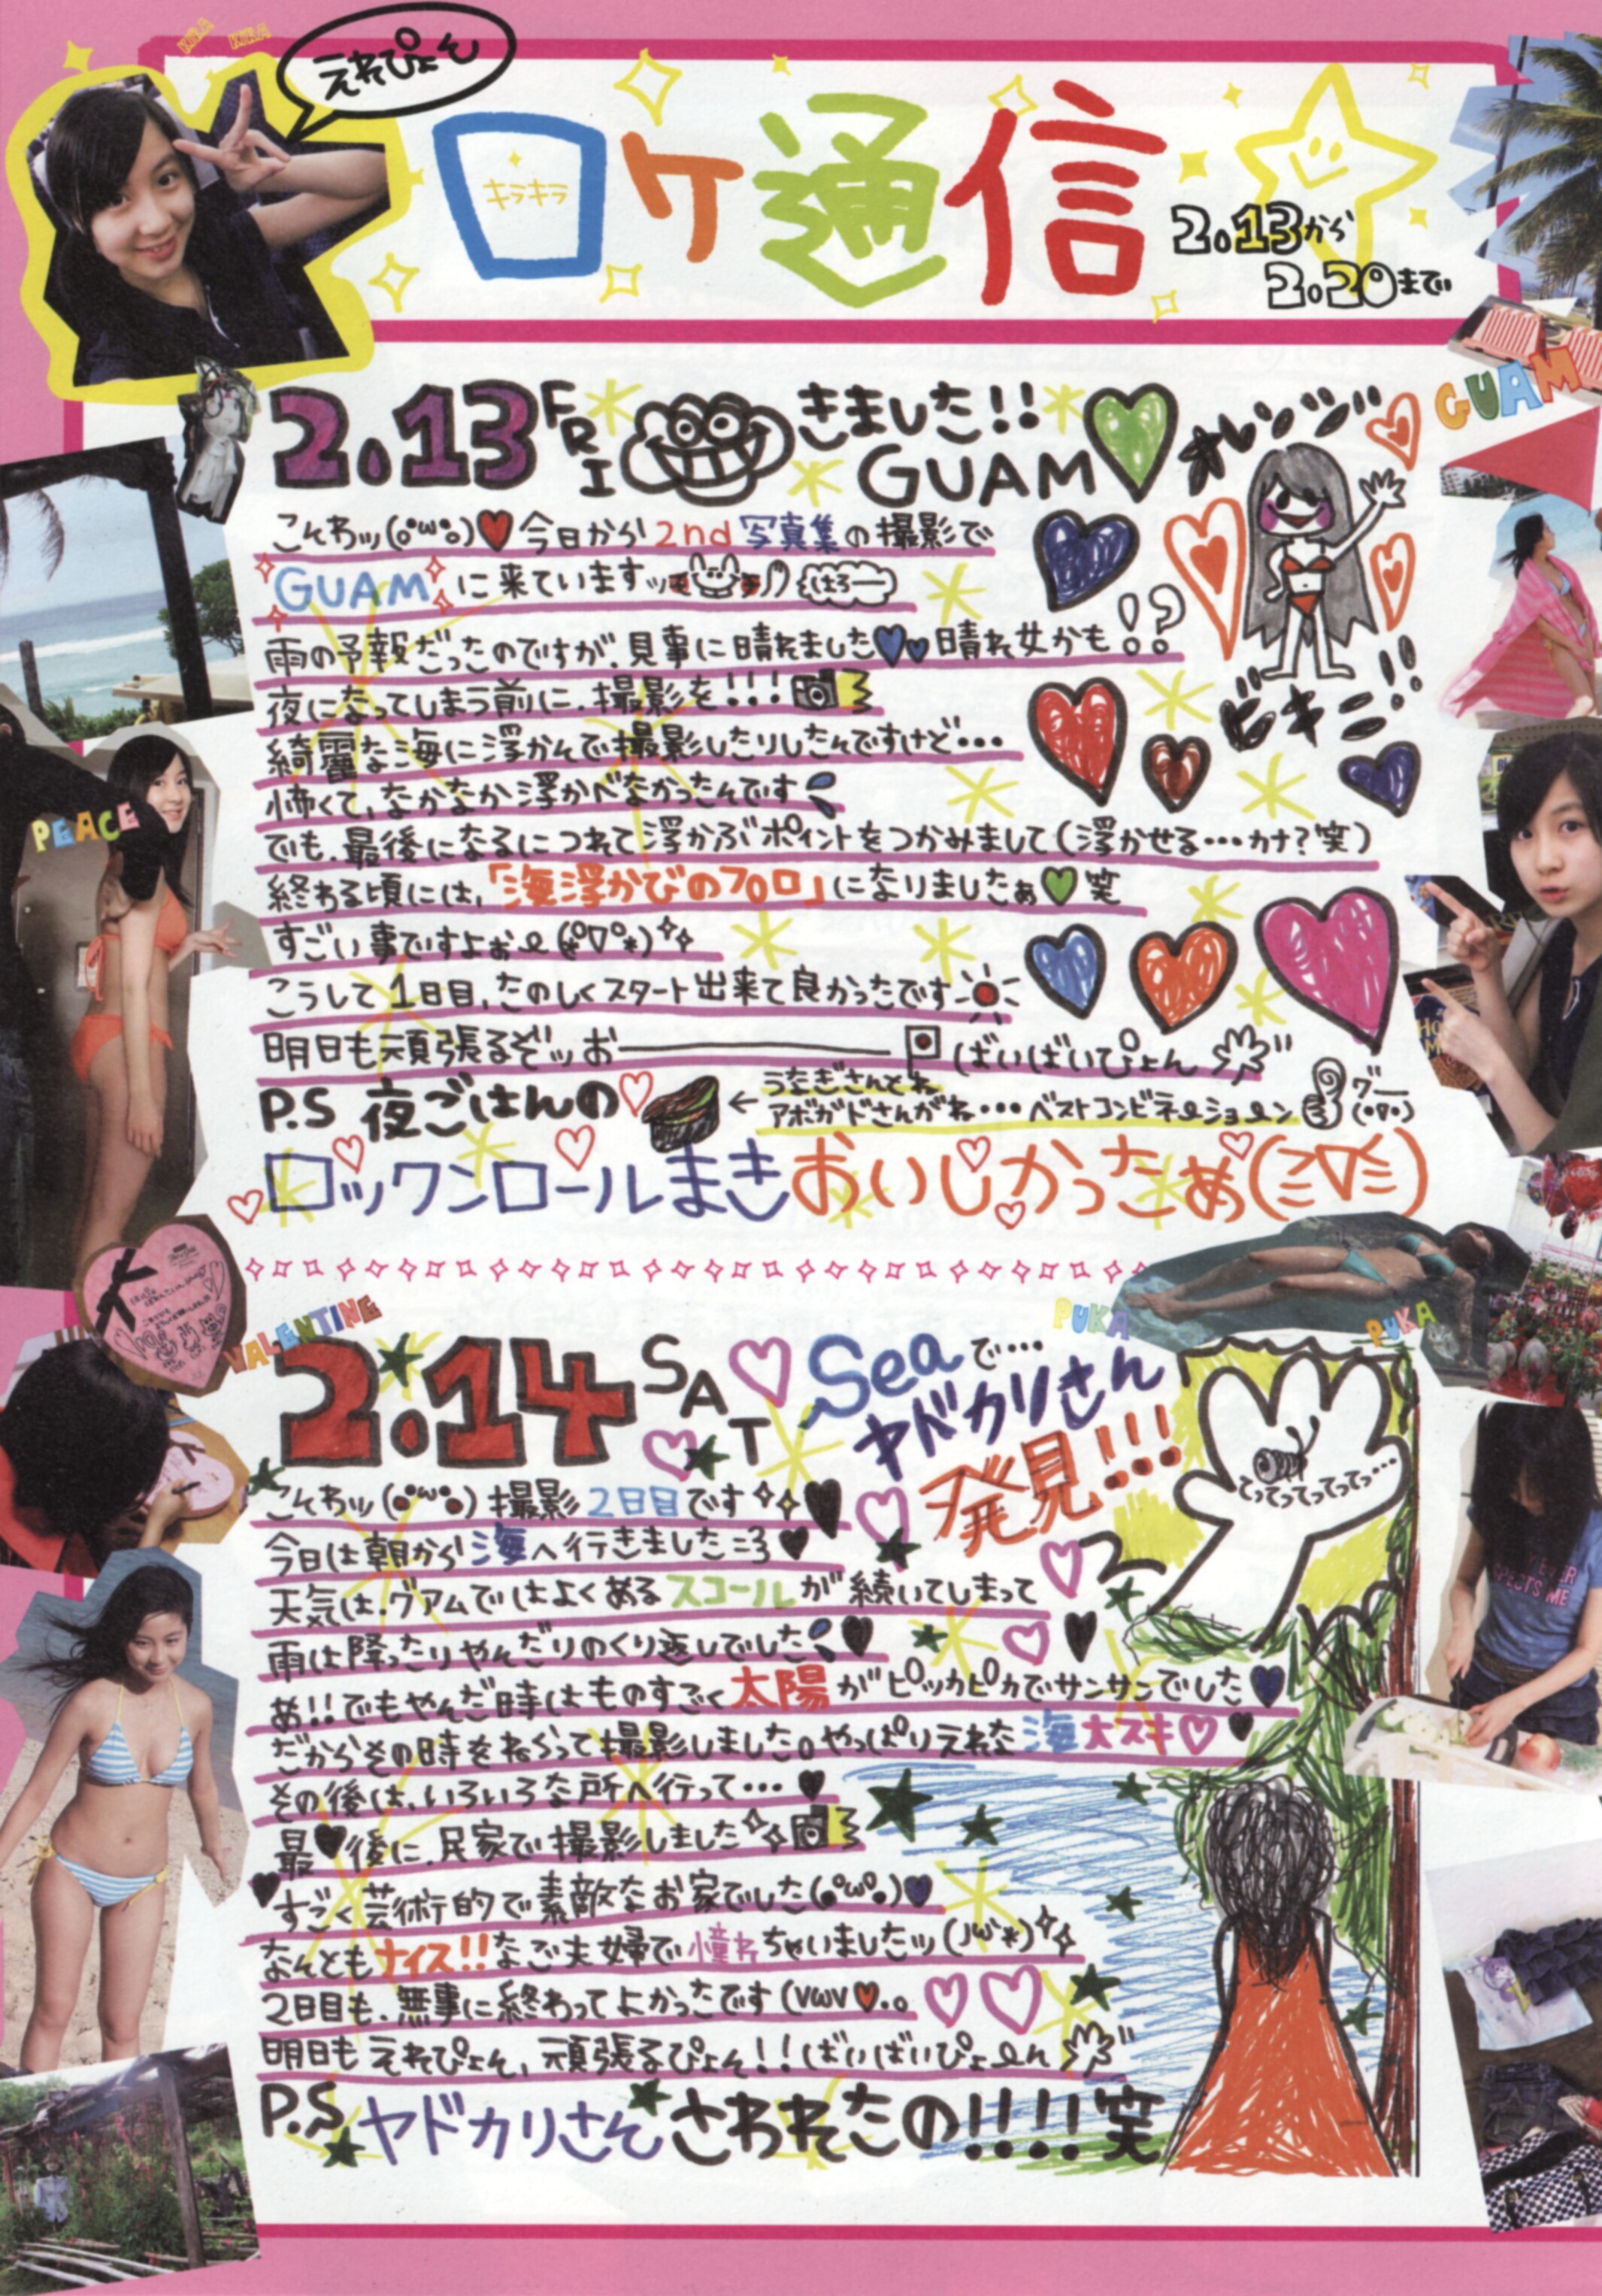 KIRA KIRA
えれぴょん
ロケ通信
キラキラ
2.13から
2.20まで
GUAM
2.13 FRI きました!! GUAM
オレンジ
ビキニ!!
こんわッ(o°ω°o)♥今日から2nd写真集の撮影で
GUAMに来ていますッ はろー
雨の予報だったのですが、見事に晴れました 晴れ女かも!?
夜になってしまう前に、撮影を!!!
綺麗な海に浮かんで撮影したりしたんですけど…
怖くて、なかなか浮かべなかったんです
でも、最後になるにつれて浮かぶポイントをつかみまして(浮かせる…カナ?笑)
終わる頃には、「海浮かびのプロ」になりましたぁ♥笑
すごい事ですよぉ
こうして1日目、たのしくスタート出来て良かったです
明日も頑張るぞッお――― ばいばいぴょん
P.S 夜ごはんの
←うなぎさんとね
アボガドさんがね…ベストコンビネーション グー
ロックンロールまきおいしかったぁ(≧∇≦)
PEACE
VALENTINE
PUKA PUKA
2.14 SAT
Seaで…
ヤドカリさん
発見!!!
てってってってってっ…
こんわッ(°ω°) 撮影2日目です
今日は朝から海へ行きました=3
天気は、グアムではよくあるスコールが続いてしまって
雨は降ったりやんだりのくり返しでした
あ!!でもやんだ時はものすごく太陽がピッカピカでサンサンでした
だからその時をねらって撮影しました。やっぱりえれな海大スキ♡
その後は、いろいろな所へ行って…
最後に、民家で撮影しました
すごく芸術的で素敵なお家でした(°ω°)
なんともナイス!!なご夫婦で憧れちゃいましたッ
2日目も、無事に終わってよかったです
明日もえれぴょん、頑張るぴょん!!ばいばいぴょーん
P.S ヤドカリさんさわれたの!!!!笑